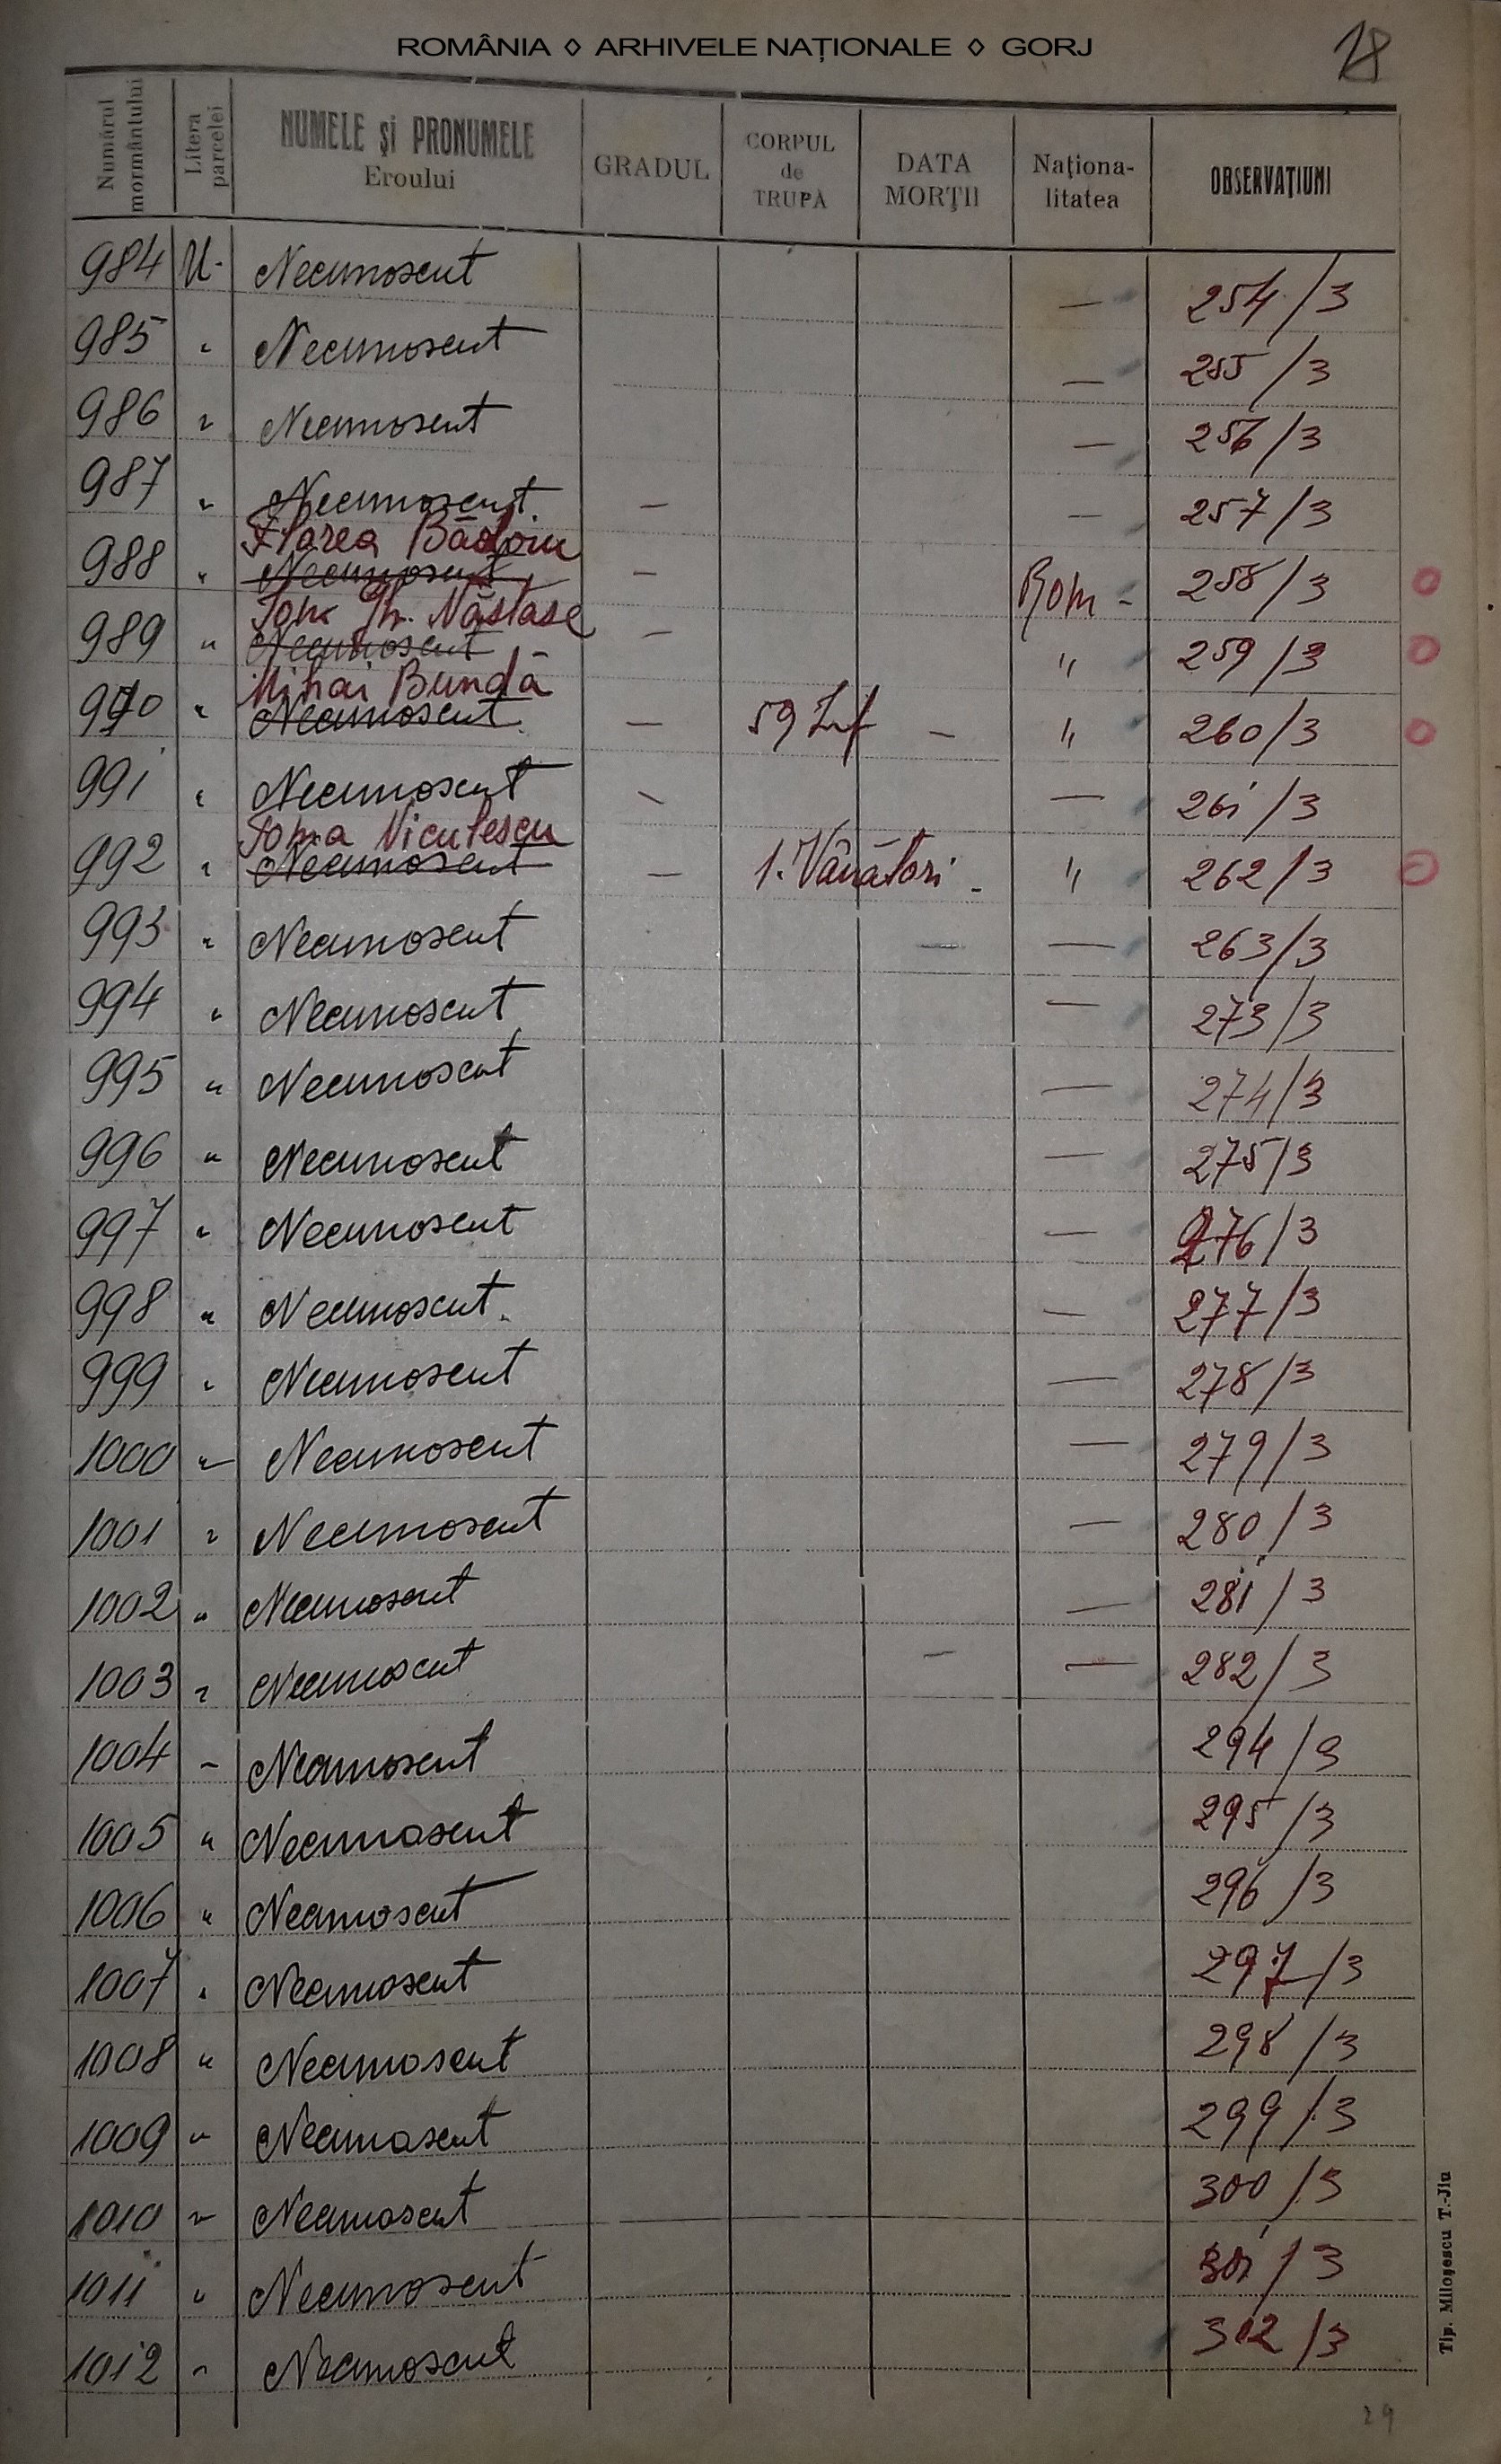 ROMÂNIA ◊ ARHIVELE NAȚIONALE ◊ GORJ
18
Numărul mormântului Litera parcelei NUMELE și PRONUMELE Eroului GRADUL CORPUL de TRUPĂ DATA MORȚII Naționa-litatea OBSERVAȚIUNI
984 U. Necunoscut — 254/3
985 " Necunoscut — 255/3
986 " Necunoscut — 256/3
987 " Necunoscut. — — 257/3
Florea
988 " Necunoscut — Rom - 258/3
Gh. Năstase
989 " Necunoscut — " 259/3
Mihai Bundă
990 " Necunoscut. — 59 Inf — " 260/3
991 " Necunoscut — — 261/3
Toma Niculescu
992 " Necunoscut — 1. Vânători - " 262/3
993 " Necunoscut — — 263/3
994 " Necunoscut — 273/3
995 " Necunoscut — 274/3
996 " Necunoscut — 275/3
997 " Necunoscut — 276/3
998 " Necunoscut. — 277/3
999 " Necunoscut — 278/3
1000 " Necunoscut — 279/3
1001 " Necunoscut — 280/3
1002 " Necunoscut — 281/3
1003 " Necunoscut — — 282/3
1004 " Necunoscut 294/3
1005 " Necunoscut 295/3
1006 " Necunoscut 296/3
1007 " Necunoscut 297/3
1008 " Necunoscut 298/3
1009 " Necunoscut 299/3
1010 " Necunoscut 300/3
1011 " Necunoscut 301/3
1012 " Necunoscut 302/3
Tip. Miloșescu T.-Jiu
29